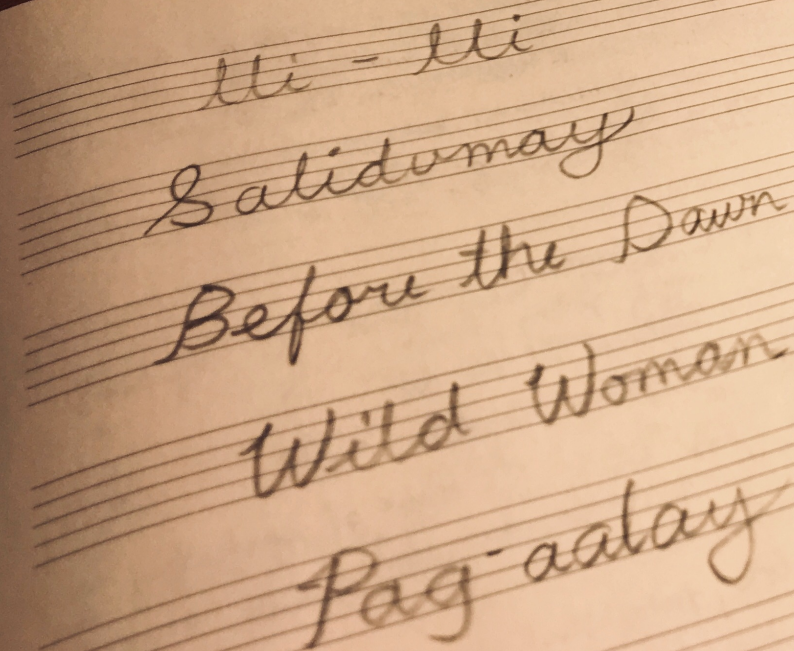 Ili - Ili
Salidumay
Before the Dawn
Wild Woman
Pag-aalay